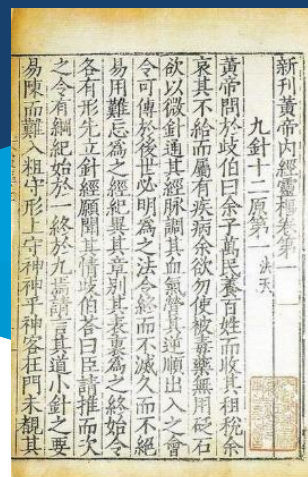 新刊黄帝内經靈樞卷第一
九針十二原第一 法天
黄帝問於歧伯曰余子萬民養百姓而收其租稅余
哀其不給而屬有疾病余欲勿使被毒藥無用砭石
欲以微針通其經脉調其血氣營其逆順出入之會
令可傳於後世必明為之法令終而不滅久而不絕
易用難忘為之經紀異其章别其表裏為之終始令
各有形先立針經願聞其情歧伯答曰臣請推而次
之令有綱紀始於一終於九焉請言其道小針之要
易陳而難入粗守形上守神神乎神客在門未覩其